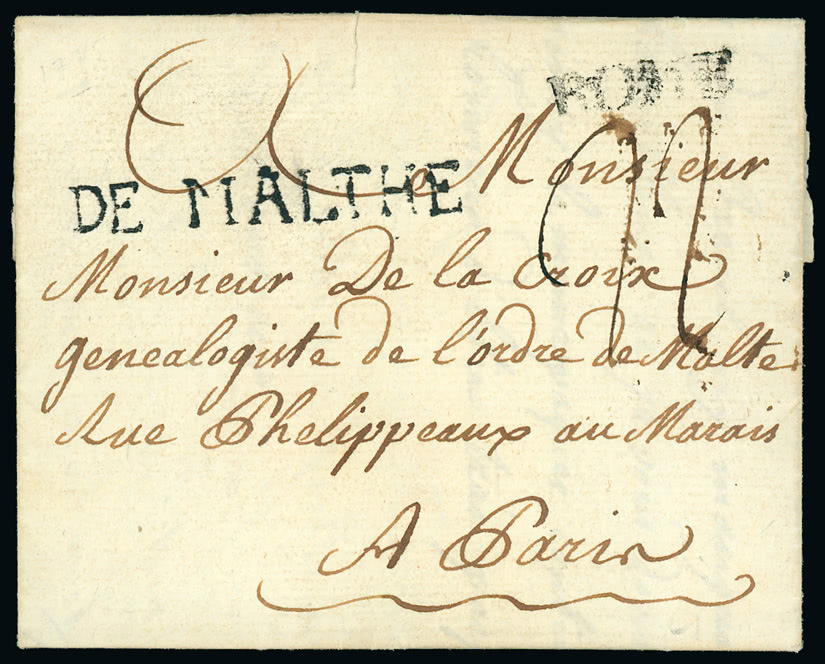 ROME
A Monsieur
DE MALTHE
Monsieur De la Croix
genealogiste de l'ordre de Malte
Rue Phelippeaux au Marais
A Paris